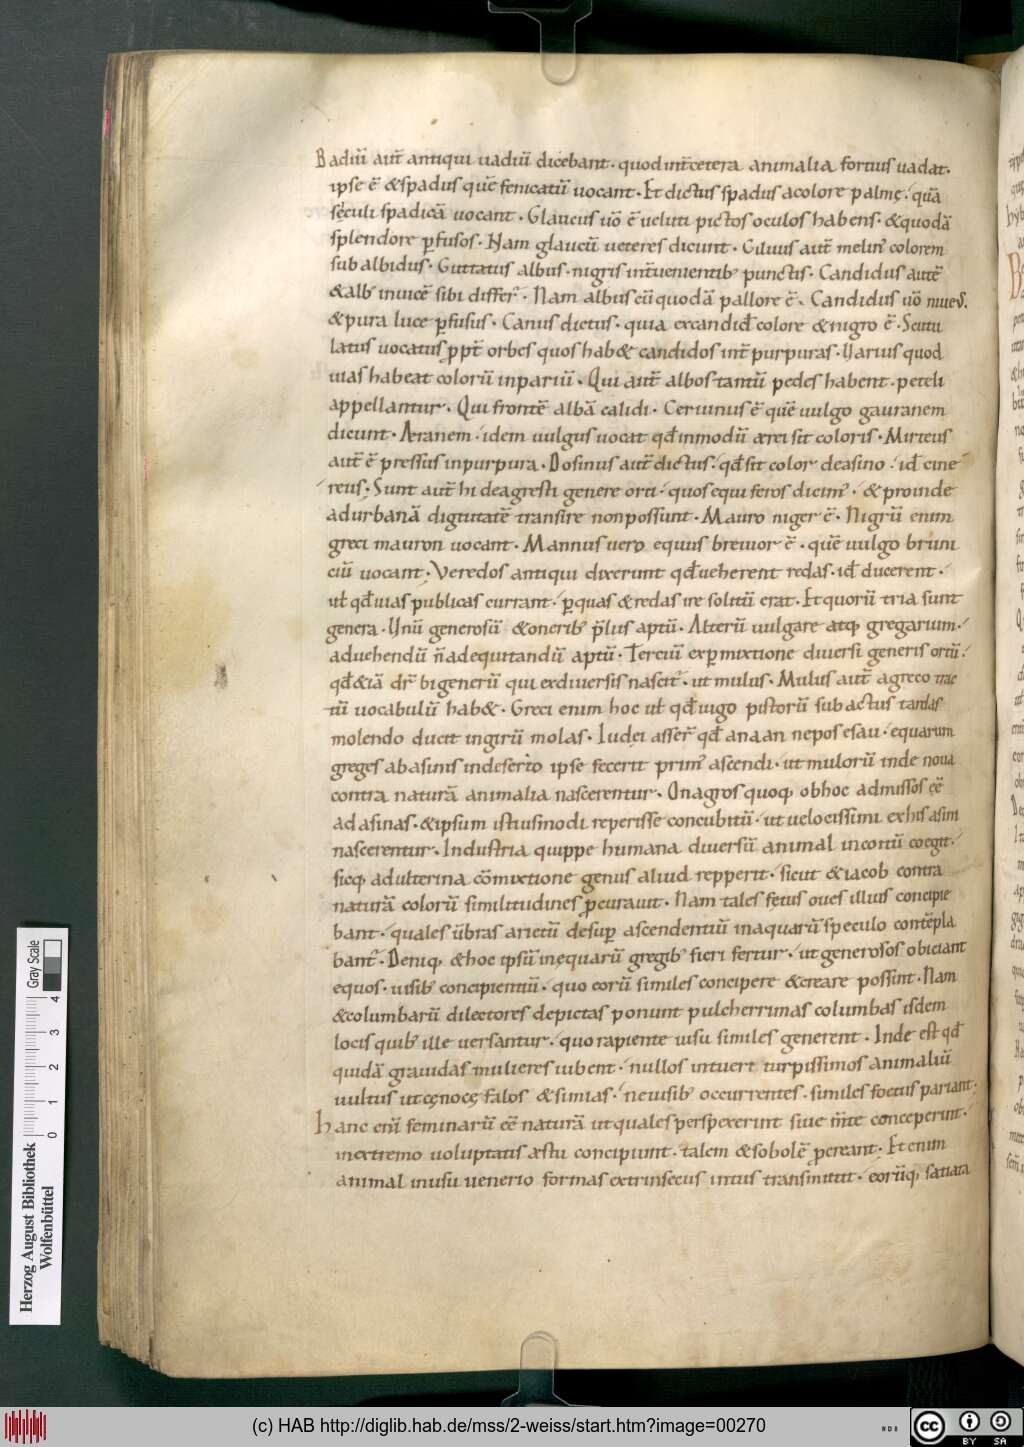 Badiū aut̄ antiqui uadiū dicebant · quod int̄cetera animalia fortius uadat ·
ipse ē &spadus quē fenicatū uocant · Et dictus spadus acolore palmę · quā
sęculi spadicā uocant · Glaucus uō ē ueluti pictos oculos habens · &quodā
splendore pfusos · Nam glaucū ueteres dicunt · Giluus aut̄ melin colorem
sub albidus · Guttatus albus · nigris int̄uenientib; punctis · Candidus autē
&alb; inuicē sibi differt̄ · Nam albus cū quodā pallore ē · Candidus uō niueus ·
&pura luce pfusus · Canus dictus · quia excandid̄ colore &nigro ē · Scutu
latus uocatus ppt̄ orbes quos hab& candidos int̄ purpuras · Uarius quod
uias habeat colorū inpariū · Qui aut̄ albos tantū pedes habent · petili
appellantur · Qui frontē albā calidi · Ceruinus ē quē uulgo gauranem
dicunt · Æranem · idem uulgus uocat qd̄ inmodū ærei sit coloris · Mirteus
aut̄ ē pressus inpurpura · Dosinus aut̄ dictus · qd̄ sit color deasino · id̄ cine
reus ; Sunt aut̄ hi deagresti genere orti · quos equiferos dicim; · &proinde
adurbanā dignitatē transire nonpossunt · Mauro niger ē · Nigrū enim
greci mauron uocant · Mannus uero equus breuior ē · quē uulgo bruni
cū uocant ; Veredos antiqui dixerunt qd̄ ueherent redas · id̄ ducerent ·
ut̄ qd̄ uias publicas currant · pquas &redas ire solitū erat · Et quorū tria sunt
genera · Unū generosū &onerib; plus aptū · Alterū uulgare atq; gregarium ·
aduehendū n̄ adequitandū aptū · Terciū expmixtione diuersi generis ortū ·
qd̄ &iā dr̄ bigenerū qui exdiuersis nascit̄ · ut mulus · Mulus aut̄ agreco trac
tū uocabulū hab& · Greci enim hoc ut̄ qd̄ iugo pistorū subactus tardas
molendo ducit ingirū molas · Iudęi asser̄ qd̄ anaan nepos esau · equarum
greges abasinis indeserto ipse fecerit prim; ascendi · ut mulorū inde noua
contra naturā animalia nascerentur · Onagros quoq; obhoc admissos ēē
ad asinas · &ipsum istiusmodi reperisse concubitū · ut uelocissimi exhis asini
nascerentur · Industria quippe humana diuersū animal incoitū coegit ·
sicq; adulterina cōmixtione genus aliud repperit · sicut &iacob contra
naturā colorū similitudines pcurauit · Nam tales fętus oues illius concipie
bant · quales ūbras arietū desup ascendentiū inaquarū speculo contēpla
bant̄ · Deniq; &hoc ipsū inęquarū gregib; fieri fertur · ut generosos obiciant
equos · uisib; concipientiū · quo eorū similes concipere &creare possint · Nam
&columbarū dilectores depictas ponunt pulcherrimas columbas isdem
locis quib; ille uersantur · quo rapiente uisu similes generent · Inde est qd̄
quidā grauidas mulieres iubent · nullos intueri turpissimos animaliū
uultus ut cęnocę falos &simias · neuisib; occurrentes · similes foetus pariant ·
hanc enī feminarū ēē naturā ut quales perspexerint siue m̄te conceperint ·
inextremo uoluptatis æstu concipiunt · talem &sobolē pcreant · Et enim
animal inusu uenerio formas extrinsecus intus transmittit · eorūq; satiata
Herzog August Bibliothek
Wolfenbüttel
0 1 2 3 4
Gray Scale
(c) HAB http://diglib.hab.de/mss/2-weiss/start.htm?image=00270
cc BY SA